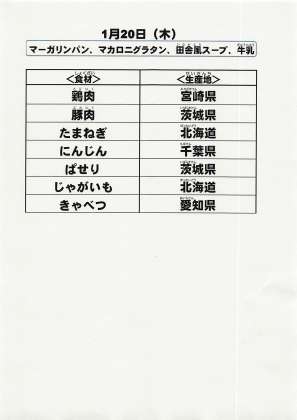 1月20日（木）
マーガリンパン、マカロニグラタン、田舎風スープ、牛乳
＜食材＞ ＜生産地＞
鶏肉 宮崎県
豚肉 茨城県
たまねぎ 北海道
にんじん 千葉県
ぱせり 茨城県
じゃがいも 北海道
きゃべつ 愛知県